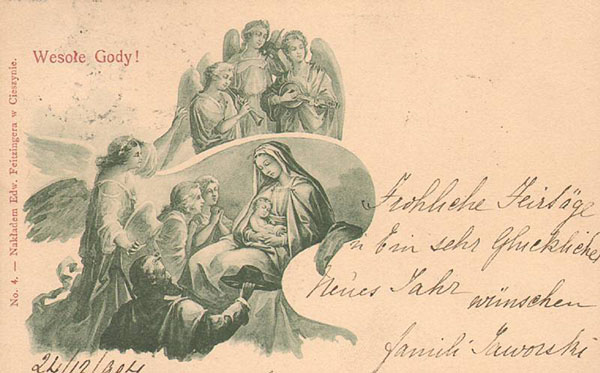 Wesołe Gody!
No. 4. — Nakładem Edw. Feitzingera w Cieszynie.
Fröhliche Feirtäge
u Ein sehr Glückliches
Neues Jahr wünschen
famili Jaworski
24/12/904